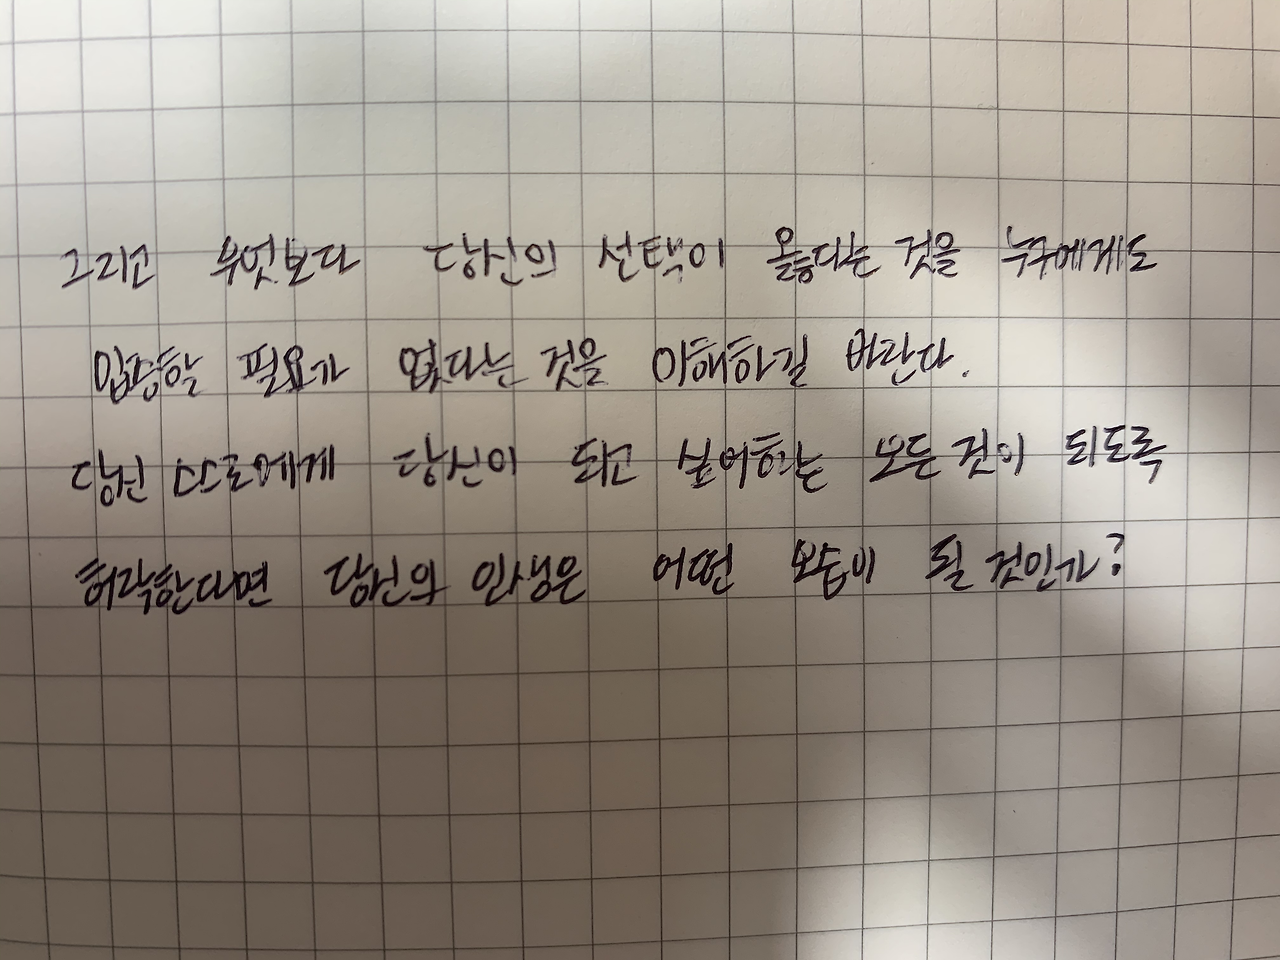 그리고 무엇보다 당신의 선택이 옳다는 것을 누구에게도
입증할 필요가 없다는 것을 이해하길 바란다.
당신 스스로에게 당신이 되고 싶어하는 모든 것이 되도록
허락한다면 당신의 인생은 어떤 모습이 될 것인가?